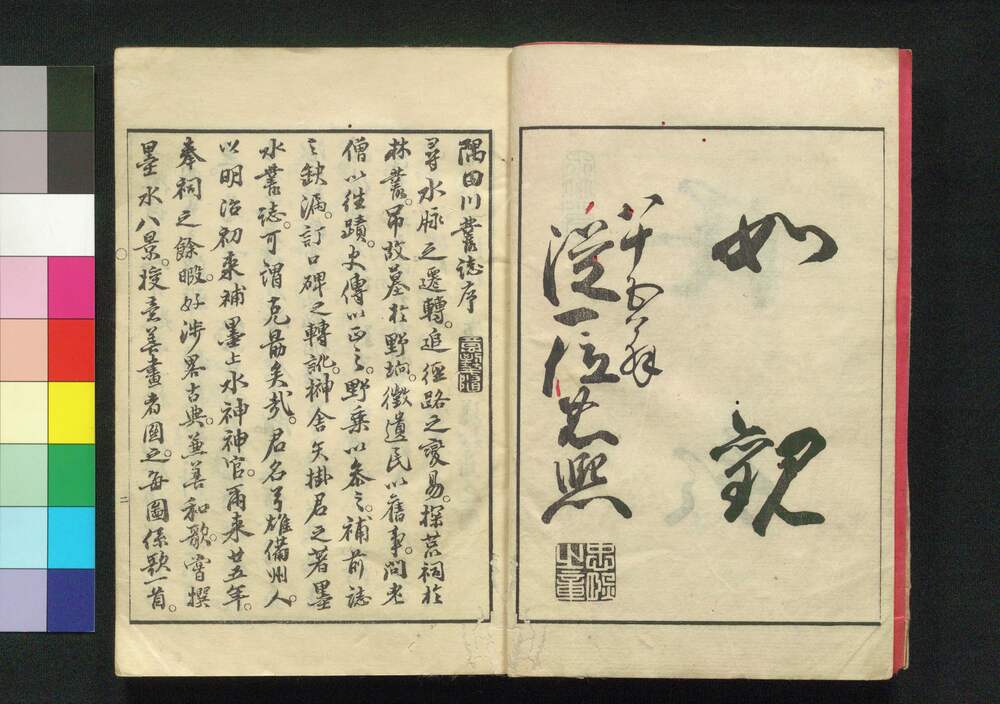 如観
八十五翁
従一位忠煕
隅田川叢誌序
尋水脉之遷轉。追徑路之變易。探荒祠於
林叢。吊故墓於野坰。徴遺民以舊事。問老
僧以往蹟。史傳以正之。野乗以参之。補前誌
之缺漏。訂口碑之轉訛。榊舎矢掛君之著墨
水叢誌。可謂克勗矣哉。君名弓雄備州人。
以明治初来補墨上水神神官。爾来廿五年。
奉祠之餘暇。好渉畧古典。兼善和歌。嘗撰
墨水八景。授意善畫者圖之。毎圖係歌一首。
二